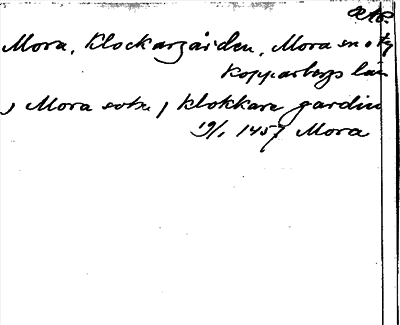 Mora, Klockargården, Mora sn o tg
Kopparbergs län
, Mora sotn, klokkare gardin
19/1 1457 Mora